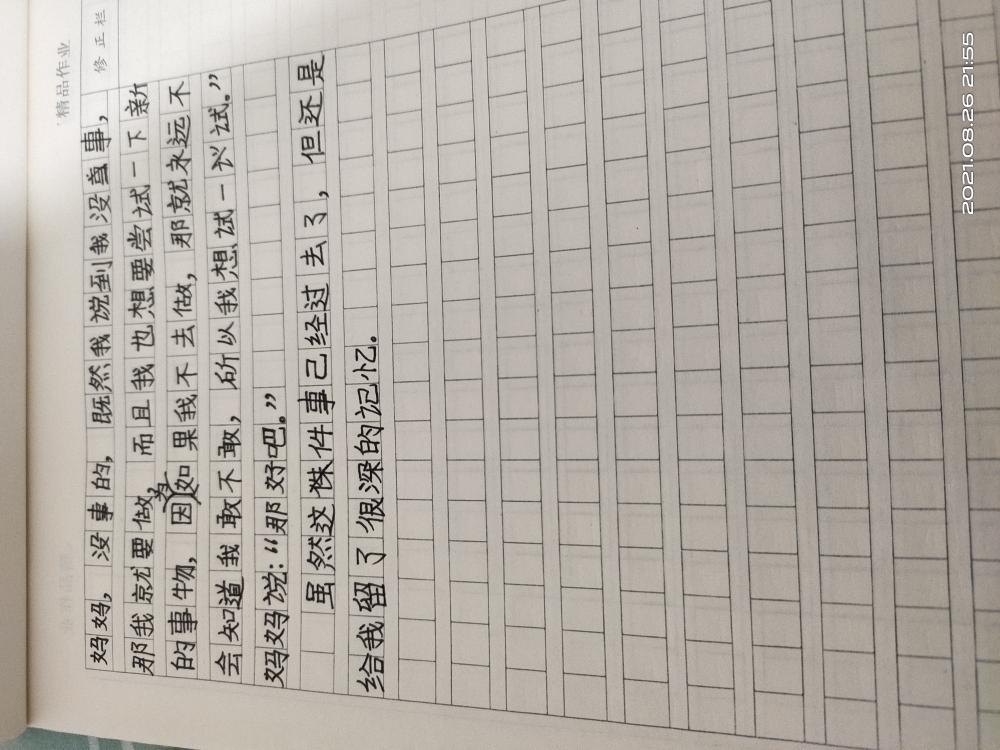 精品作业
修正栏
妈妈，没事的，既然我说到我没啬事，
那我就要做，而且我也想要尝试一下新
的事物，因为如果我不去做，那就永远不
会知道我敢不敢，所以我想试一试试。”
妈妈说：“那好吧。”
虽然这件事已经过去了，但还是
给我留了很深的记忆。
2021.08.26 21:55